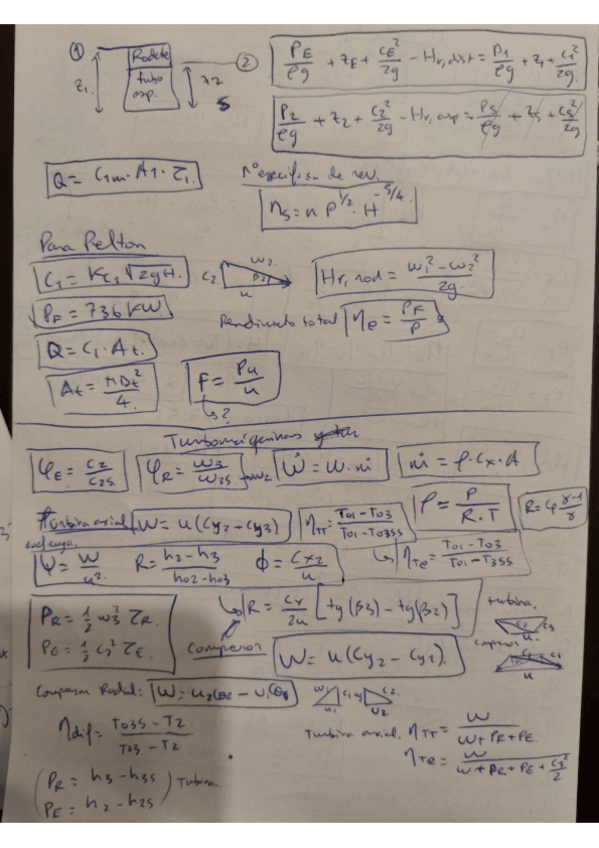 ① Rodete ②
z₁ tubo asp. λ2 S
P_E/ρg + z_E + c_E²/2g − Hr,dist = P1/ρg + z₁ + c₁²/2g
P2/ρg + z₂ + c₂²/2g − Hr,asp = P5/ρg + z5 + c5²/2g
Q = C₁m · A₁ · τ₁.
nº específico de rev.
ns = n P^1/2 · H^-5/4
Para Pelton
C₁ = Kc₁ √2gH.
c₂ w₂ β₂ u
Hr,rod = (w₁² − w₂²)/2g
P_F = 736 KW
Rendimiento total ηe = P_F/P
Q = C₁ · At.
At = πDt²/4.
F = Pu/u
↳ ?
Turbomáquinas
φE = c2/c2s
φR = w3/w3s → w2
Ẇ = W · ṁ
ṁ = ρ · Cx · A
Turbina axial W = u(Cy2 − Cy3)
ηTT = (T01 − T03)/(T01 − T03ss)
ρ = P/(R·T)
R = Cp (γ−1)/γ
coef carga.
Ψ = W/u²
R = (h2 − h3)/(h02 − h03)
φ = Cx2/u
↳ ηTe = (T01 − T03)/(T01 − T3ss)
PR = 1/2 w3² ζR.
PE = 1/2 c2² ζE.
↳ R = Cx/2u [tg(β3) − tg(β2)]
turbina.
c2 c3 u
Compresor W = u(Cy2 − Cy1).
compresor
c2 c1 u
Compresor Radial: W = u2Cθ2 − u1Cθ1
w c1 u1 w c2 u2
ηdif = (T03s − T2)/(T03 − T2)
Turbina axial. ηTT = W/(W + PR + PE)
ηTe = W/(W + PR + PE + c3²/2)
(PR = h3 − h3s
PE = h2 − h2s) Turbina